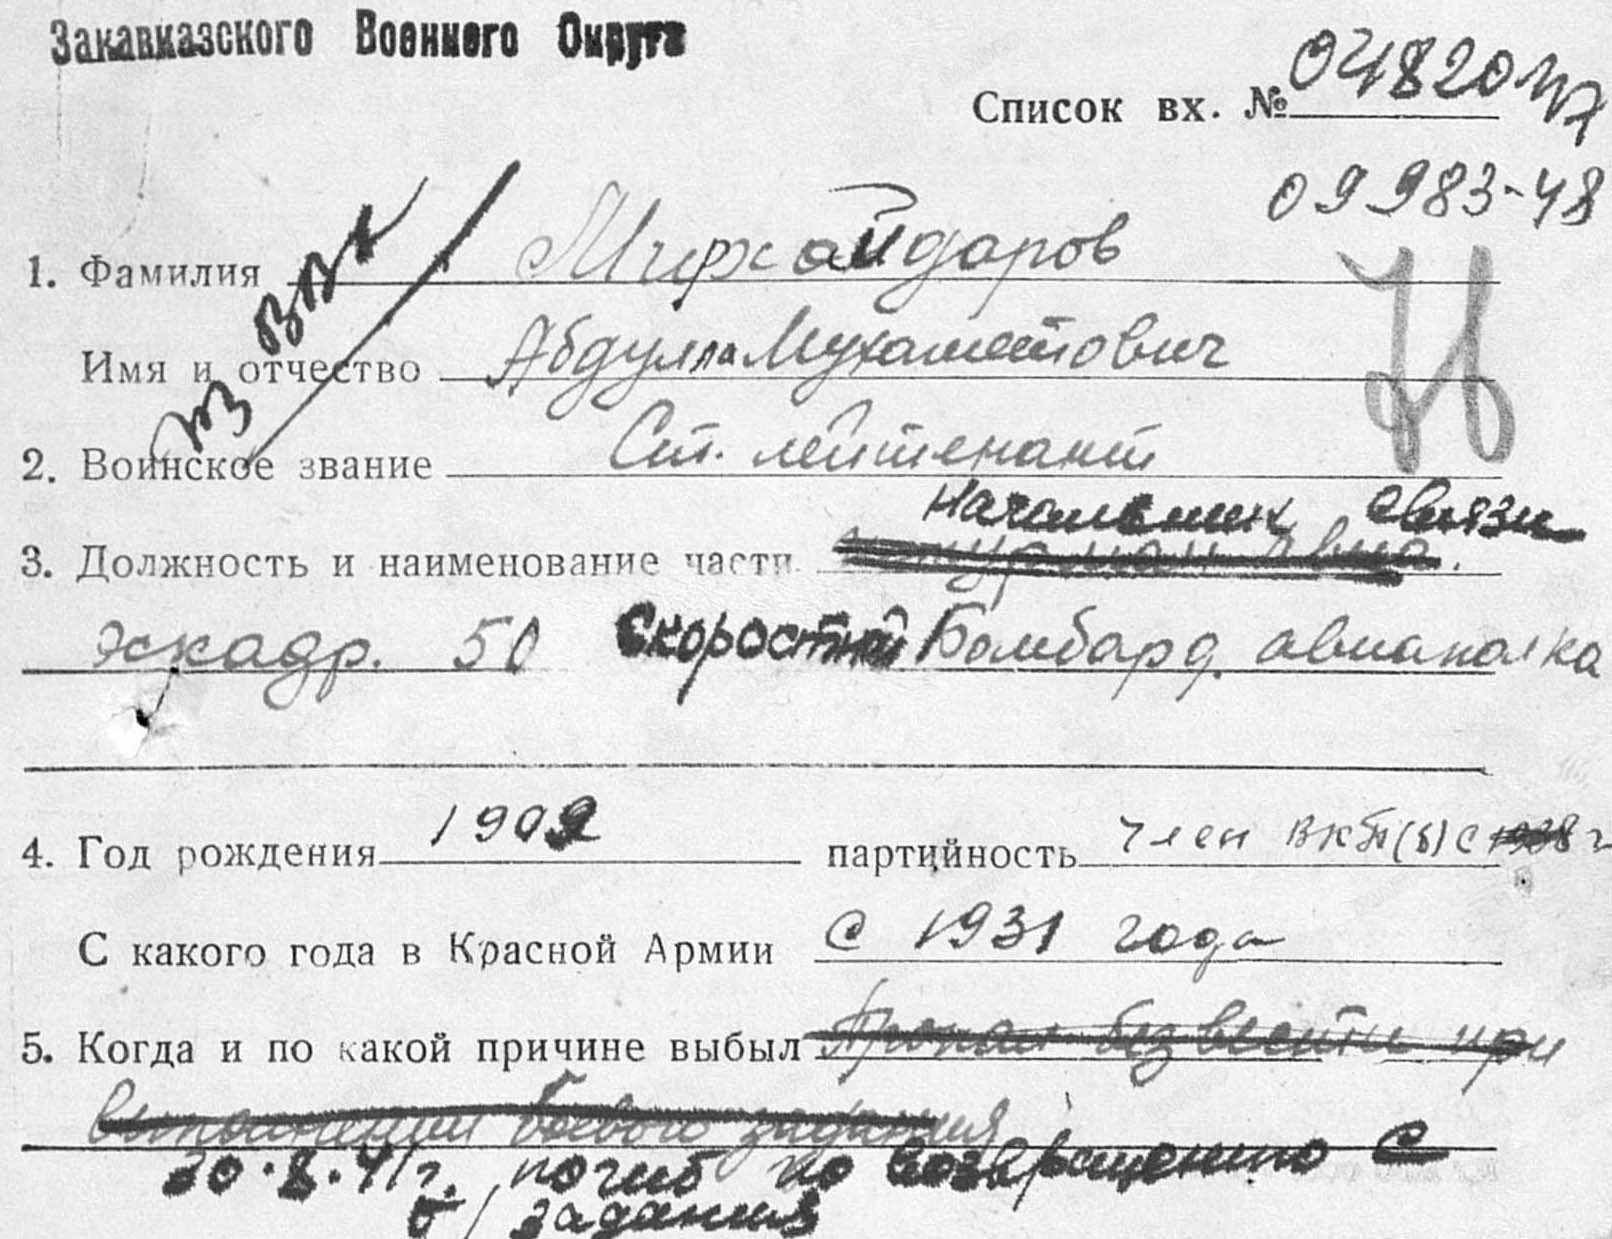 Закавказского Военного Округа
Список вх. № 04820
09983-48
1. Фамилия Мирхайдаров
из ВПК
Имя и отчество Абдулла Мухаметович
2. Воинское звание Ст. лейтенант
начальник связи
3. Должность и наименование части штурман авиа.
эскадр. 50 Скоростной Бомбард. авиаполка
4. Год рождения 1909 партийность член ВКП(б) с 1938 г
С какого года в Красной Армии С 1931 года
5. Когда и по какой причине выбыл Пропал без вести при
выполнении боевого задания
30.8.41г. погиб по возвращению с
задания